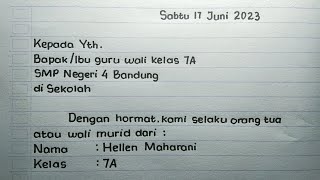 Sabtu 17 Juni 2023
Kepada Yth.
Bapak/Ibu guru wali kelas 7A
SMP Negeri 4 Bandung
di Sekolah
Dengan hormat.kami selaku orang tua
atau wali murid dari :
Nama : Hellen Maharani
Kelas : 7A